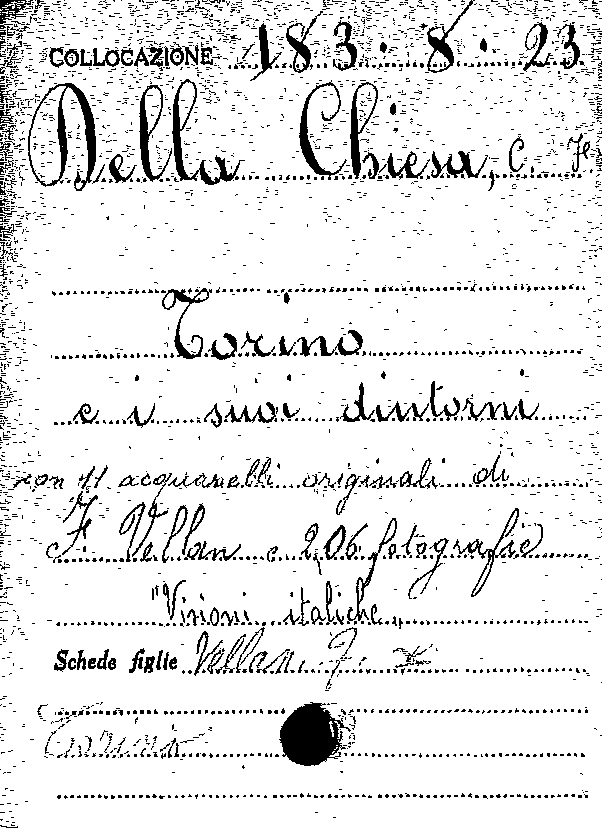 COLLOCAZIONE 183.8.23
Della Chiesa, C. F.
Torino
e i suoi dintorni
con 11 acquarelli originali di
F. Vellan e 206 fotografie
"Visioni italiche"
Schede figlie Vellan. F.
Torino